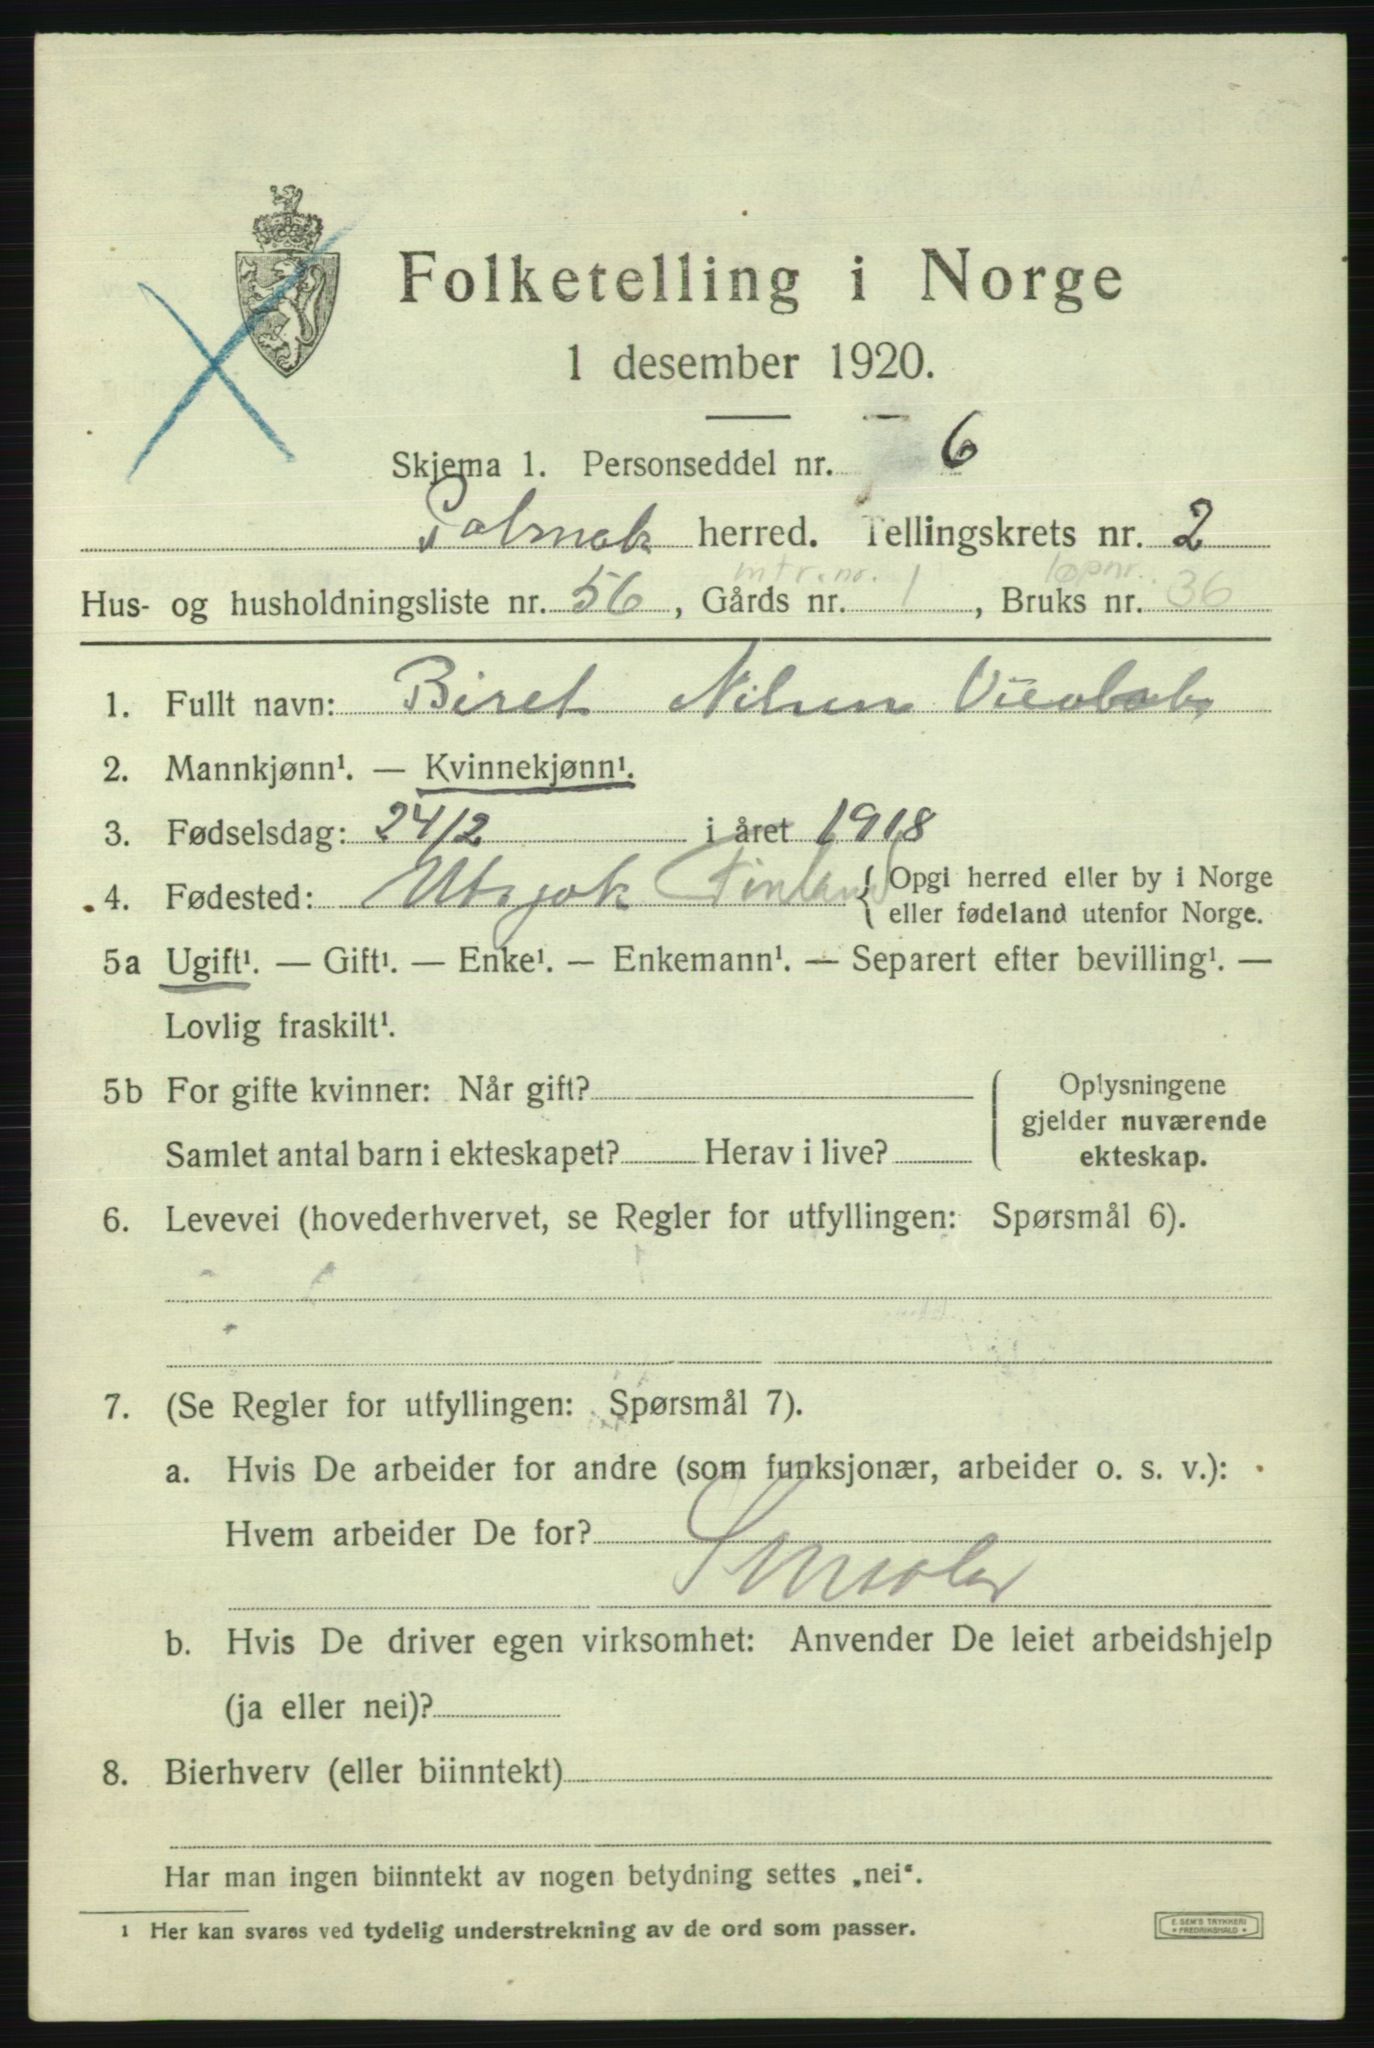 Folketelling i Norge
1 desember 1920.
Skjema 1. Personseddel nr. 6
Polmak herred. Tellingskrets nr. 2
mtr. nr. løpnr.
Hus- og husholdningsliste nr. 56, Gårds nr. 1, Bruks nr. 36
1. Fullt navn: Biret Nilsen
2. Mannkjønn¹. — Kvinnekjønn¹.
3. Fødselsdag: 24/2 i året 1918
4. Fødested: Utsjok Finland { Opgi herred eller by i Norge
eller fødeland utenfor Norge.
5a Ugift¹. — Gift¹. — Enke¹. — Enkemann¹. — Separert efter bevilling¹. —
Lovlig fraskilt¹.
5b For gifte kvinner: Når gift?
Samlet antal barn i ekteskapet? Herav i live?
Oplysningene
gjelder nuværende
ekteskap.
6. Levevei (hovederhvervet, se Regler for utfyllingen: Spørsmål 6).
7. (Se Regler for utfyllingen: Spørsmål 7).
a. Hvis De arbeider for andre (som funksjonær, arbeider o. s. v.):
Hvem arbeider De for?
b. Hvis De driver egen virksomhet: Anvender De leiet arbeidshjelp
(ja eller nei)?
8. Bierhverv (eller biinntekt)
Har man ingen biinntekt av nogen betydning settes „nei“.
¹ Her kan svares ved tydelig understrekning av de ord som passer.
E. SEM'S TRYKKERI
• FREDRIKSHALD •